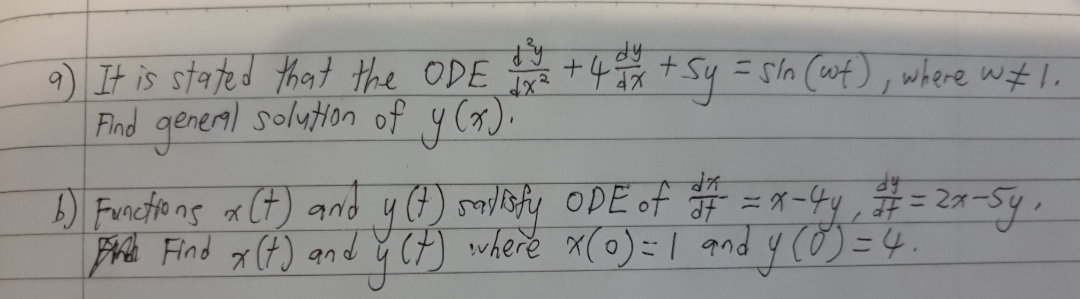 a) It is stated that the ODE d²y/dx² + 4 dy/dx + 5y = sin(wt), where w ≠ 1.
Find general solution of y(x).
b) Functions x(t) and y(t) satisfy ODE of dx/dt = x-4y, dy/dt = 2x-5y.
Find x(t) and y(t) where x(0)=1 and y(0)=4.